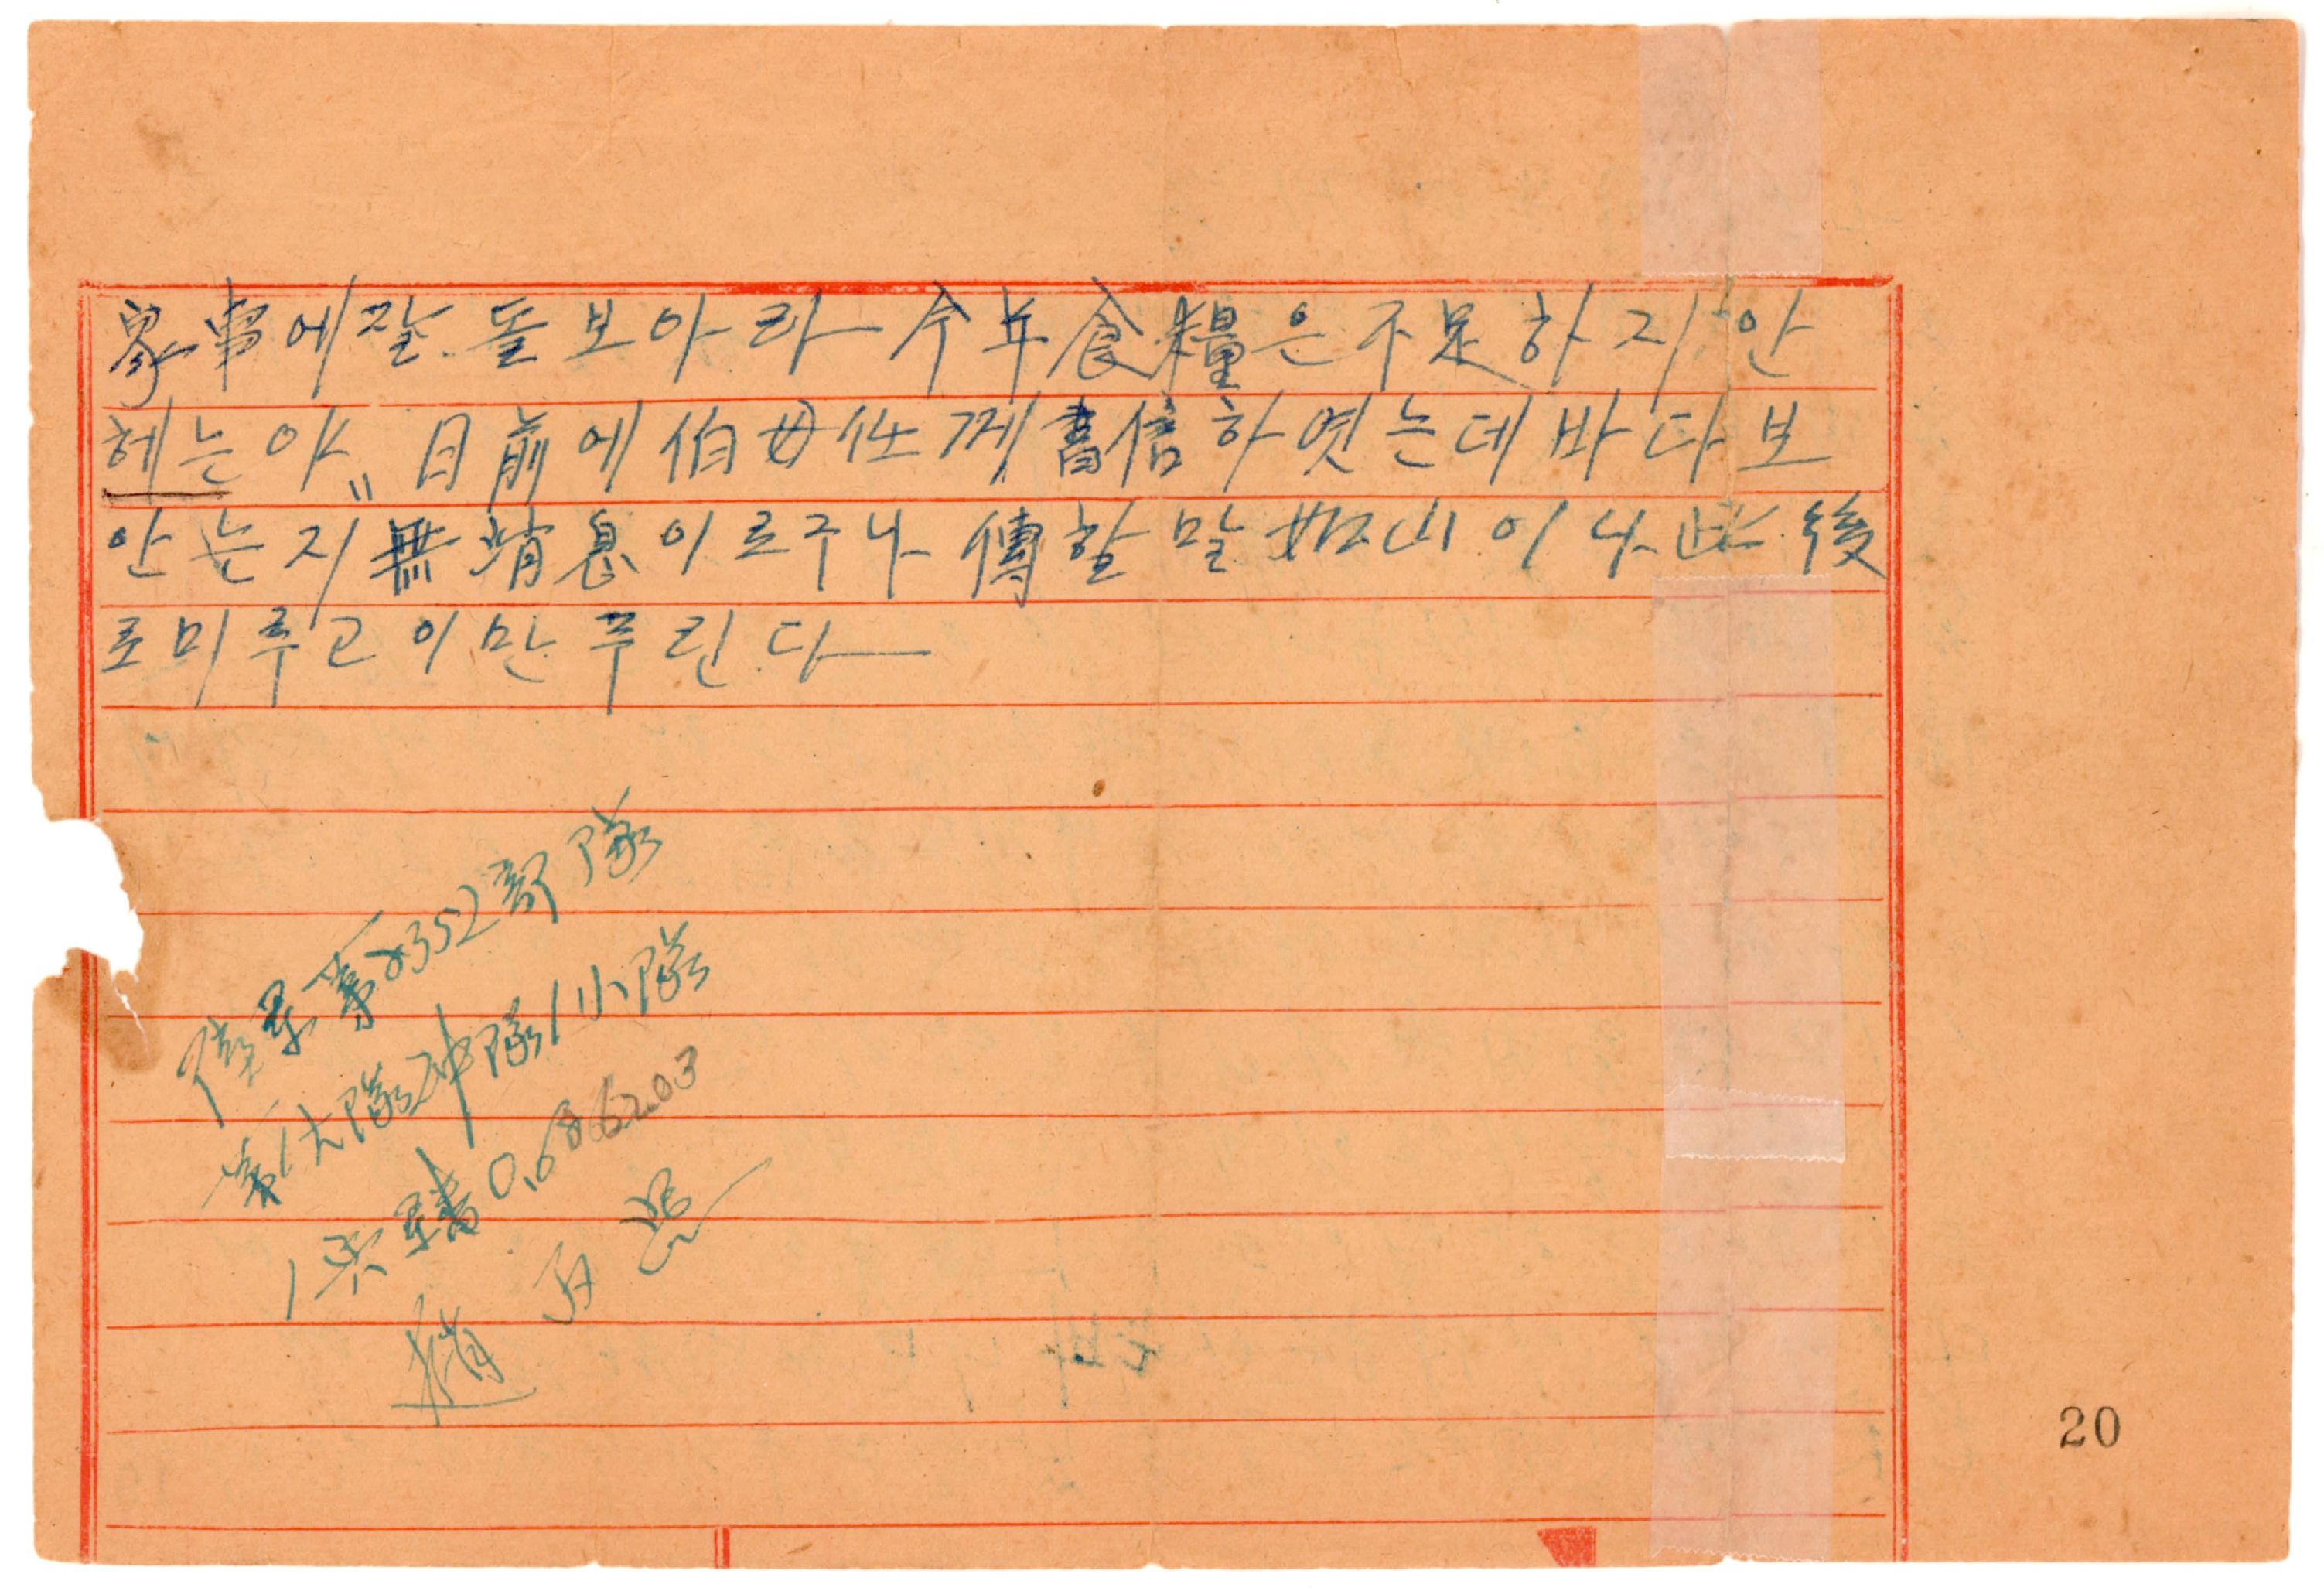 家事에잘 돌보아라— 今年食糧은不足하지안
헤는야" 日前에伯母任께書信하엿는데바다보
안는지無消息이로구나 傳할말 如山이나此後
로미루고이만주린다—
陸軍第8352部隊
第1大隊2中隊1小隊
軍番0,6862.03
趙
20